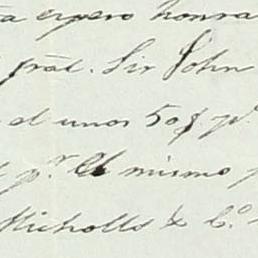 espero honra
frâl. Sir John
el unos 50$ p.
p.r El mismo
Nicholls & C.o